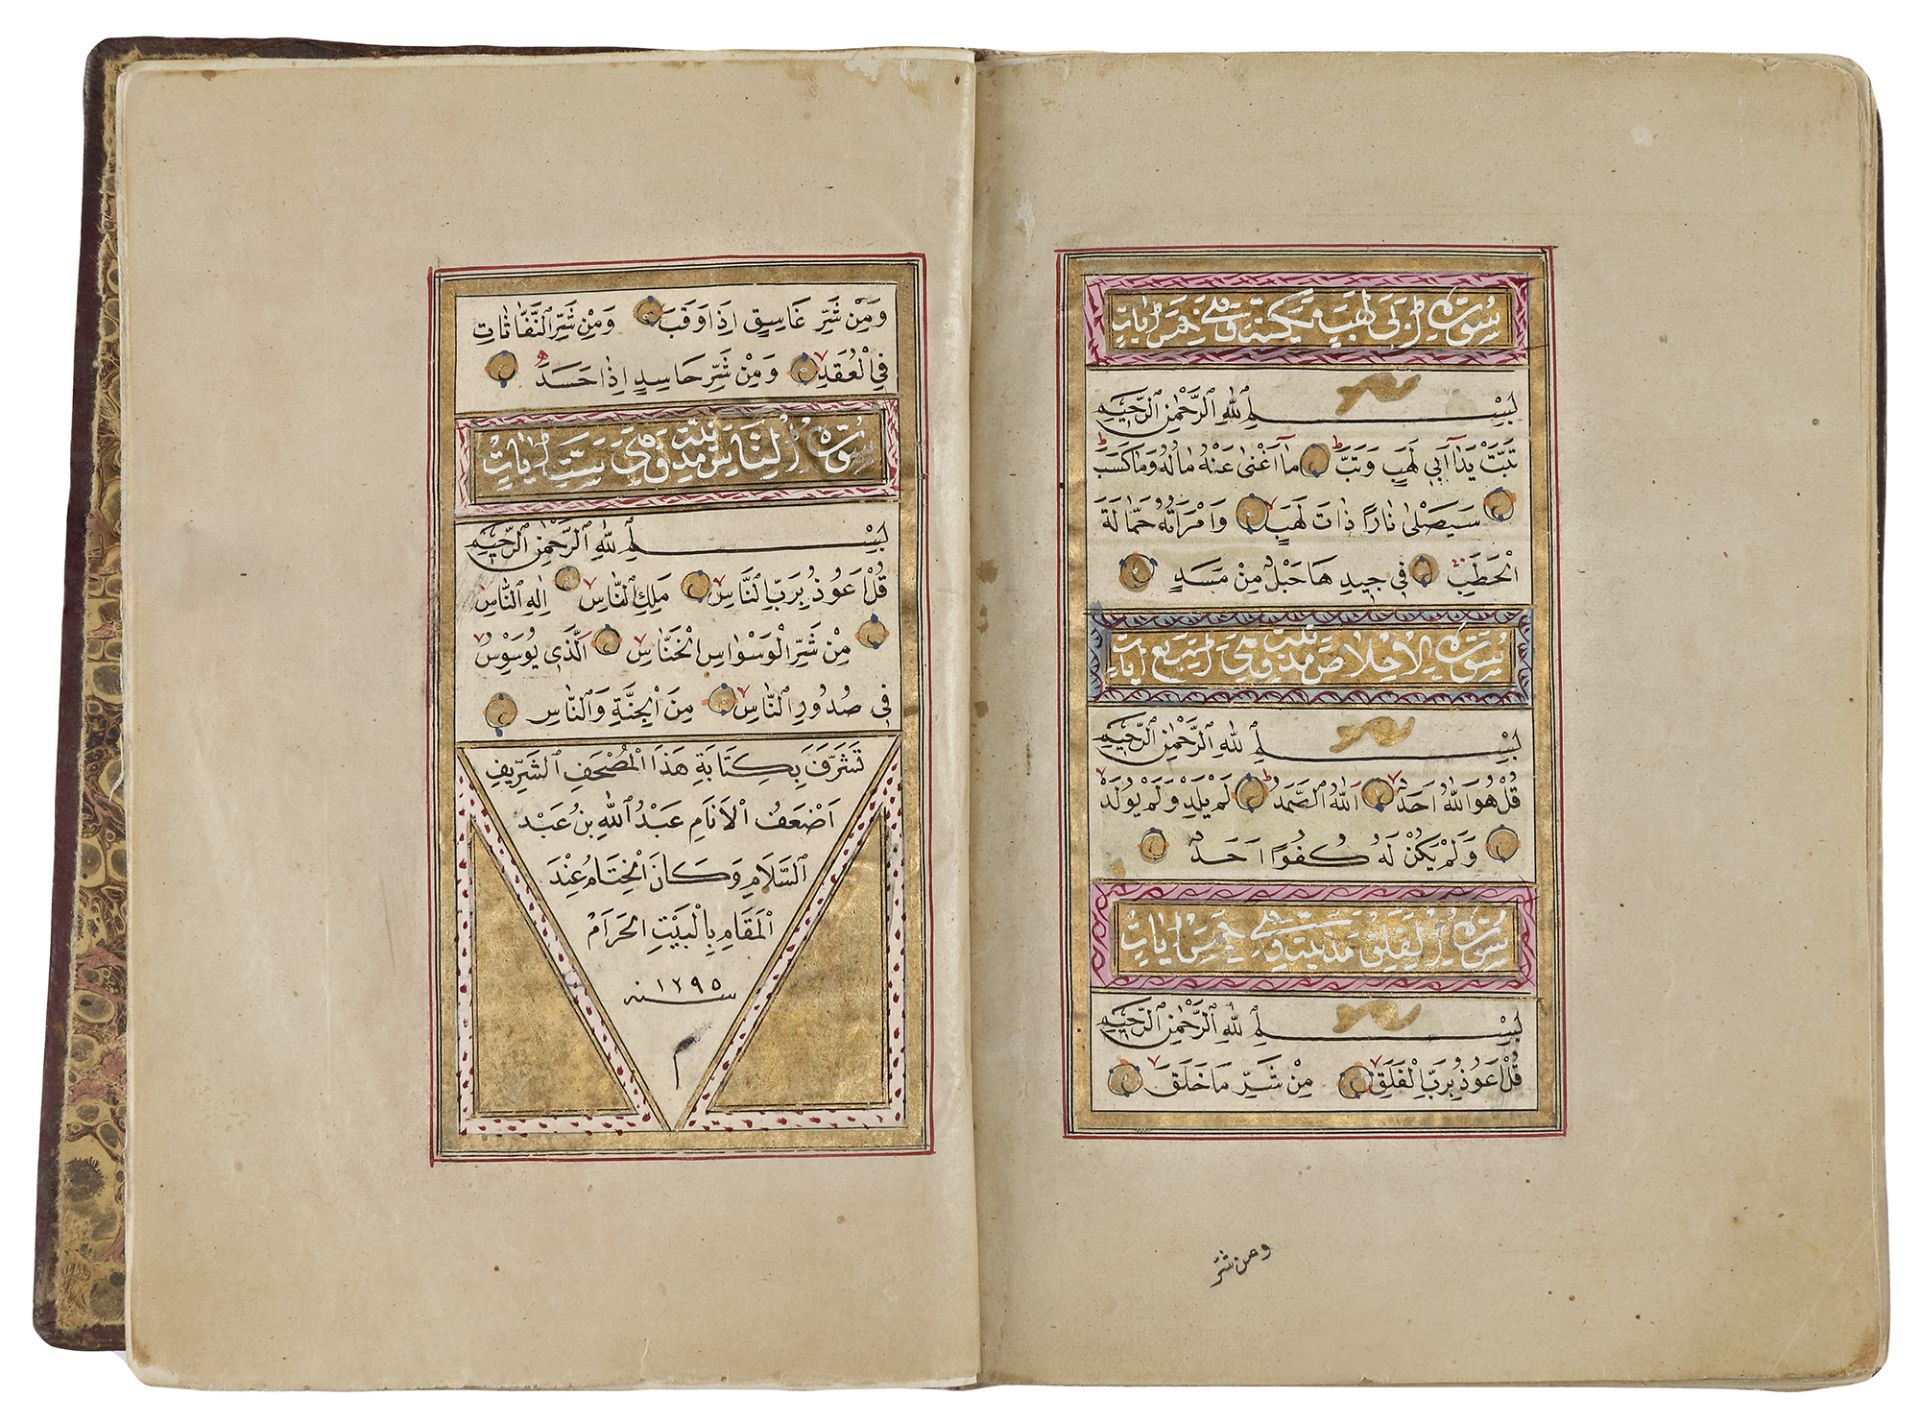 سورة أبي لهب مكية وهي خمس آيات
بِسْمِ اللهِ الرَّحْمٰنِ الرَّحِيمِ
تَبَّتْ يَدَآ اَبِي لَهَبٍ وَتَبَّ مَآ اَغْنٰى عَنْهُ مَالُهُ وَمَا كَسَبَ
سَيَصْلٰى نَارًا ذَاتَ لَهَبٍ وَامْرَاَتُهُ حَمَّالَةَ
الْحَطَبِ فِي جِيدِهَا حَبْلٌ مِنْ مَسَدٍ
سورة الإخلاص مدنية وهي أربع آيات
بِسْمِ اللهِ الرَّحْمٰنِ الرَّحِيمِ
قُلْ هُوَ اللهُ اَحَدٌ اَللهُ الصَّمَدُ لَمْ يَلِدْ وَلَمْ يُولَدْ
وَلَمْ يَكُنْ لَهُ كُفُوًا اَحَدٌ
سورة الفلق مدنية وهي خمس آيات
بِسْمِ اللهِ الرَّحْمٰنِ الرَّحِيمِ
قُلْ اَعُوذُ بِرَبِّ الْفَلَقِ مِنْ شَرِّ مَا خَلَقَ
ومن شر
وَمِنْ شَرِّ غَاسِقٍ اِذَا وَقَبَ وَمِنْ شَرِّ النَّفَّاثَاتِ
فِي الْعُقَدِ وَمِنْ شَرِّ حَاسِدٍ اِذَا حَسَدَ
سورة الناس مدنية وهي ست آيات
بِسْمِ اللهِ الرَّحْمٰنِ الرَّحِيمِ
قُلْ اَعُوذُ بِرَبِّ النَّاسِ مَلِكِ النَّاسِ اِلٰهِ النَّاسِ
مِنْ شَرِّ الْوَسْوَاسِ الْخَنَّاسِ اَلَّذِي يُوَسْوِسُ
فِي صُدُورِ النَّاسِ مِنَ الْجِنَّةِ وَالنَّاسِ
تَشَرَّفَ بِكِتَابَةِ هَذَا الْمُصْحَفِ الشَّرِيفِ
اَضْعَفُ الْاَنَامِ عَبْدُ اللهِ بْنُ عَبْدِ
السَّلَامِ وَكَانَ الْخِتَامُ عِنْدَ
الْمَقَامِ بِالْبَيْتِ الْحَرَامِ
سنه ١٢٩٥
م